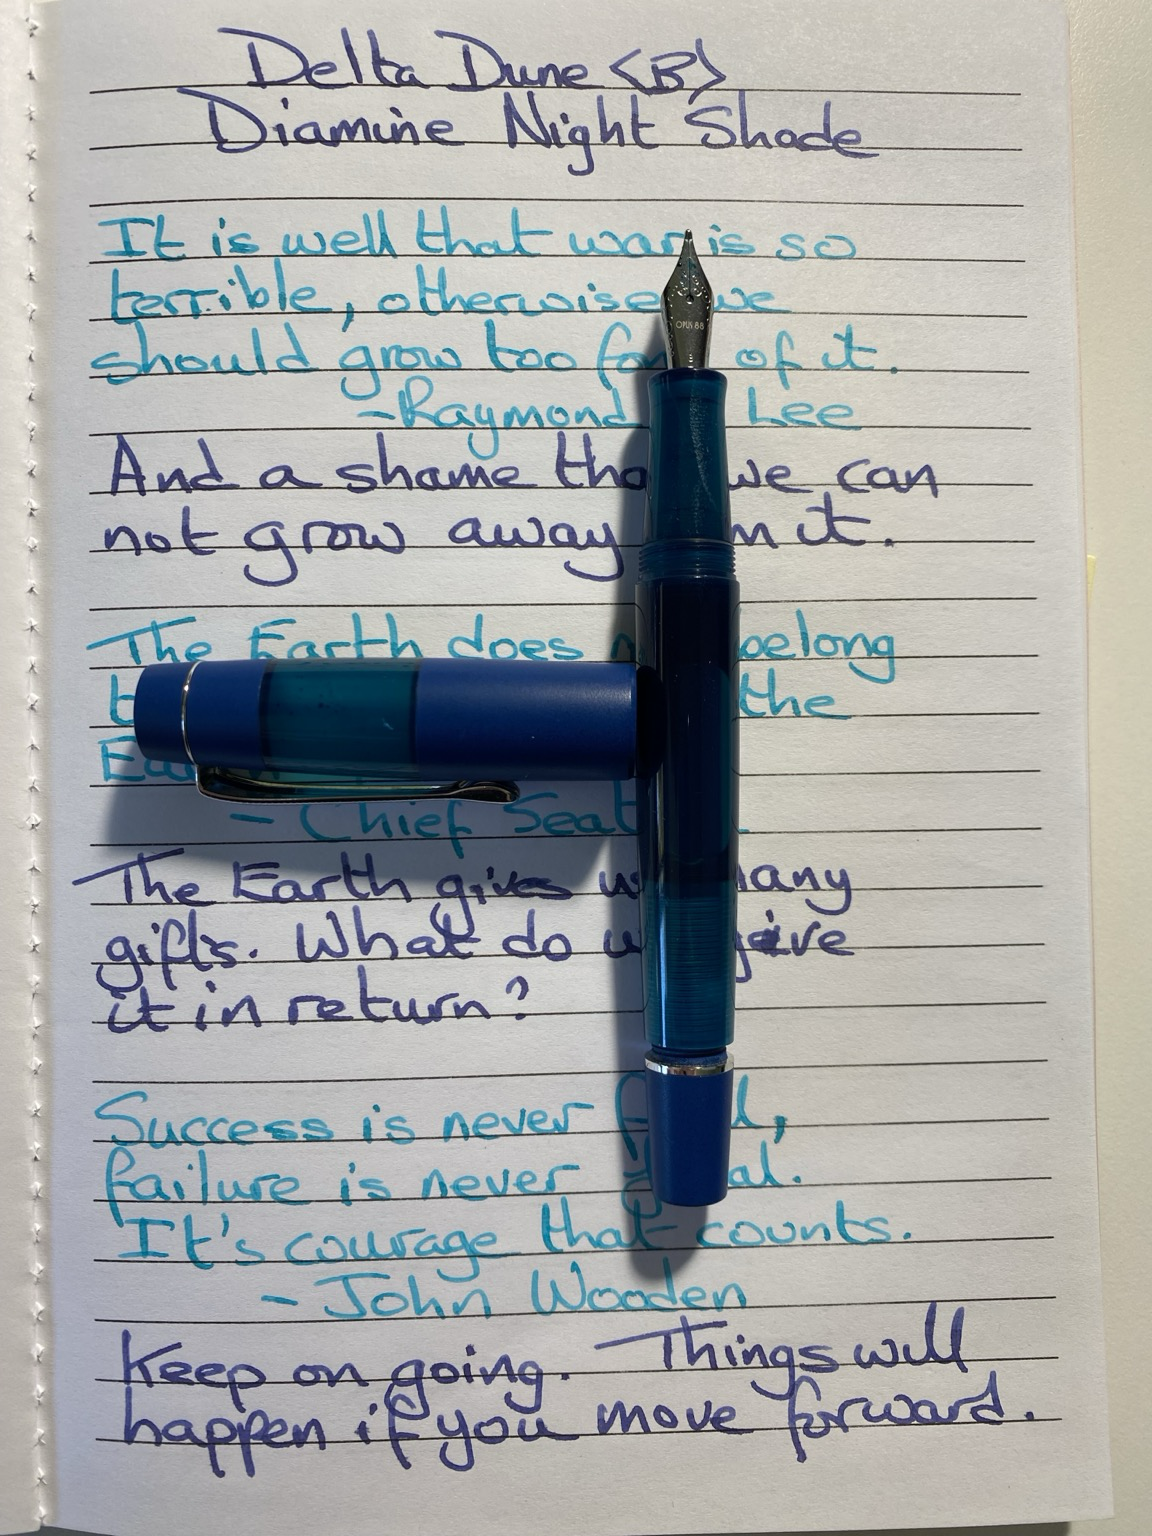 Delta Dune <B>
Diamine Night Shade
It is well that war is so
terrible, otherwise we
should grow too of it.
-Raymond Lee
And a shame we can
not grow away it.
The Earth does
the
- Chief
The Earth gives
gifts. What do give
it in return?
Success is never
failure is never
It's courage that counts.
- John Wooden
Keep on going. Things will
happen if you move forward.
OPUS 88